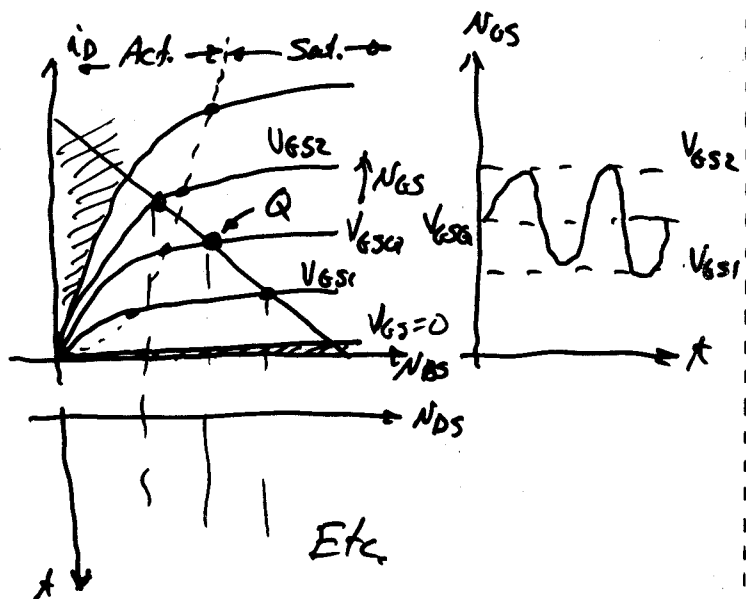 iD Act. Sat.
VGS2
vGS
Q
VGSQ
VGS1
VGS=0
vDS
vDS
t
Etc.
vGS
VGS2
VGSQ
VGS1
t